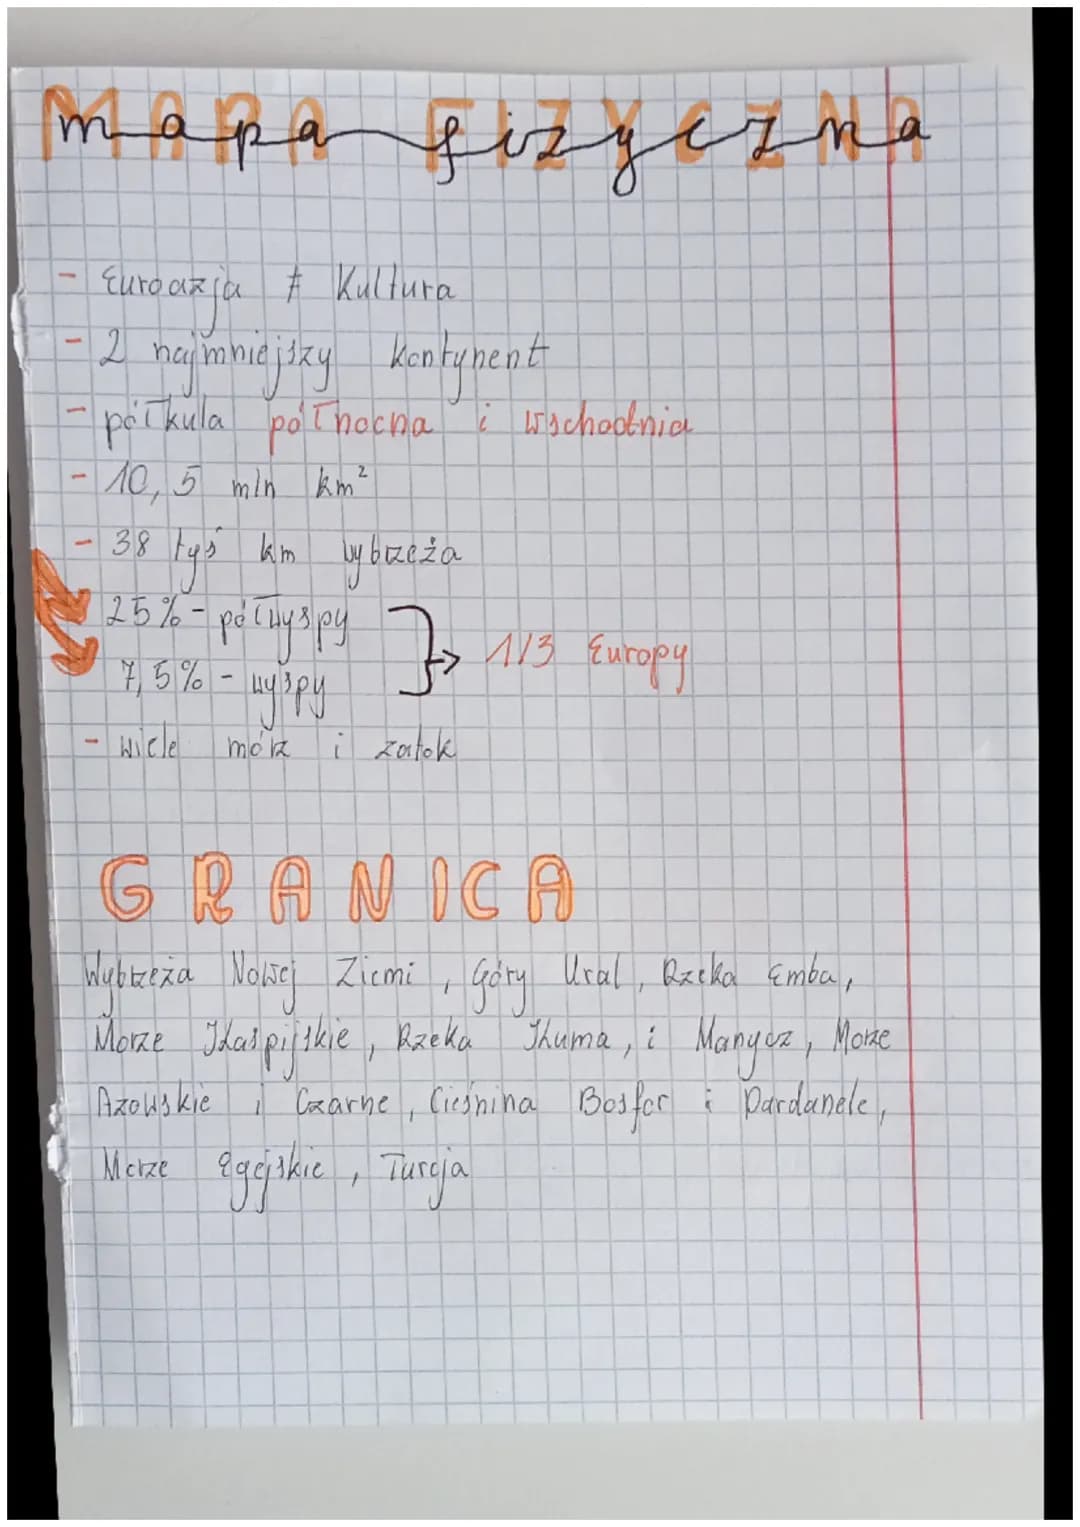 MAPA FIZYCZNA
mapa fizyczna
- Euroazja ≠ Kultura
- 2 najmniejszy kontynent
- półkula północna i wschodnia
- 10,5 mln km²
- 38 tyś km wybrzeża
25% - półwyspy
7,5% - wyspy
} → 1/3 Europy
- wiele mórz i zatok
GRANICA
Wybrzeża Nowej Ziemi, Góry Ural, Rzeka Emba,
Morze Kaspijskie, Rzeka Kuma, i Manycz, Morze
Azowskie i Czarne, Cieśnina Bosfor i Dardanele,
Morze Egejskie, Turcja